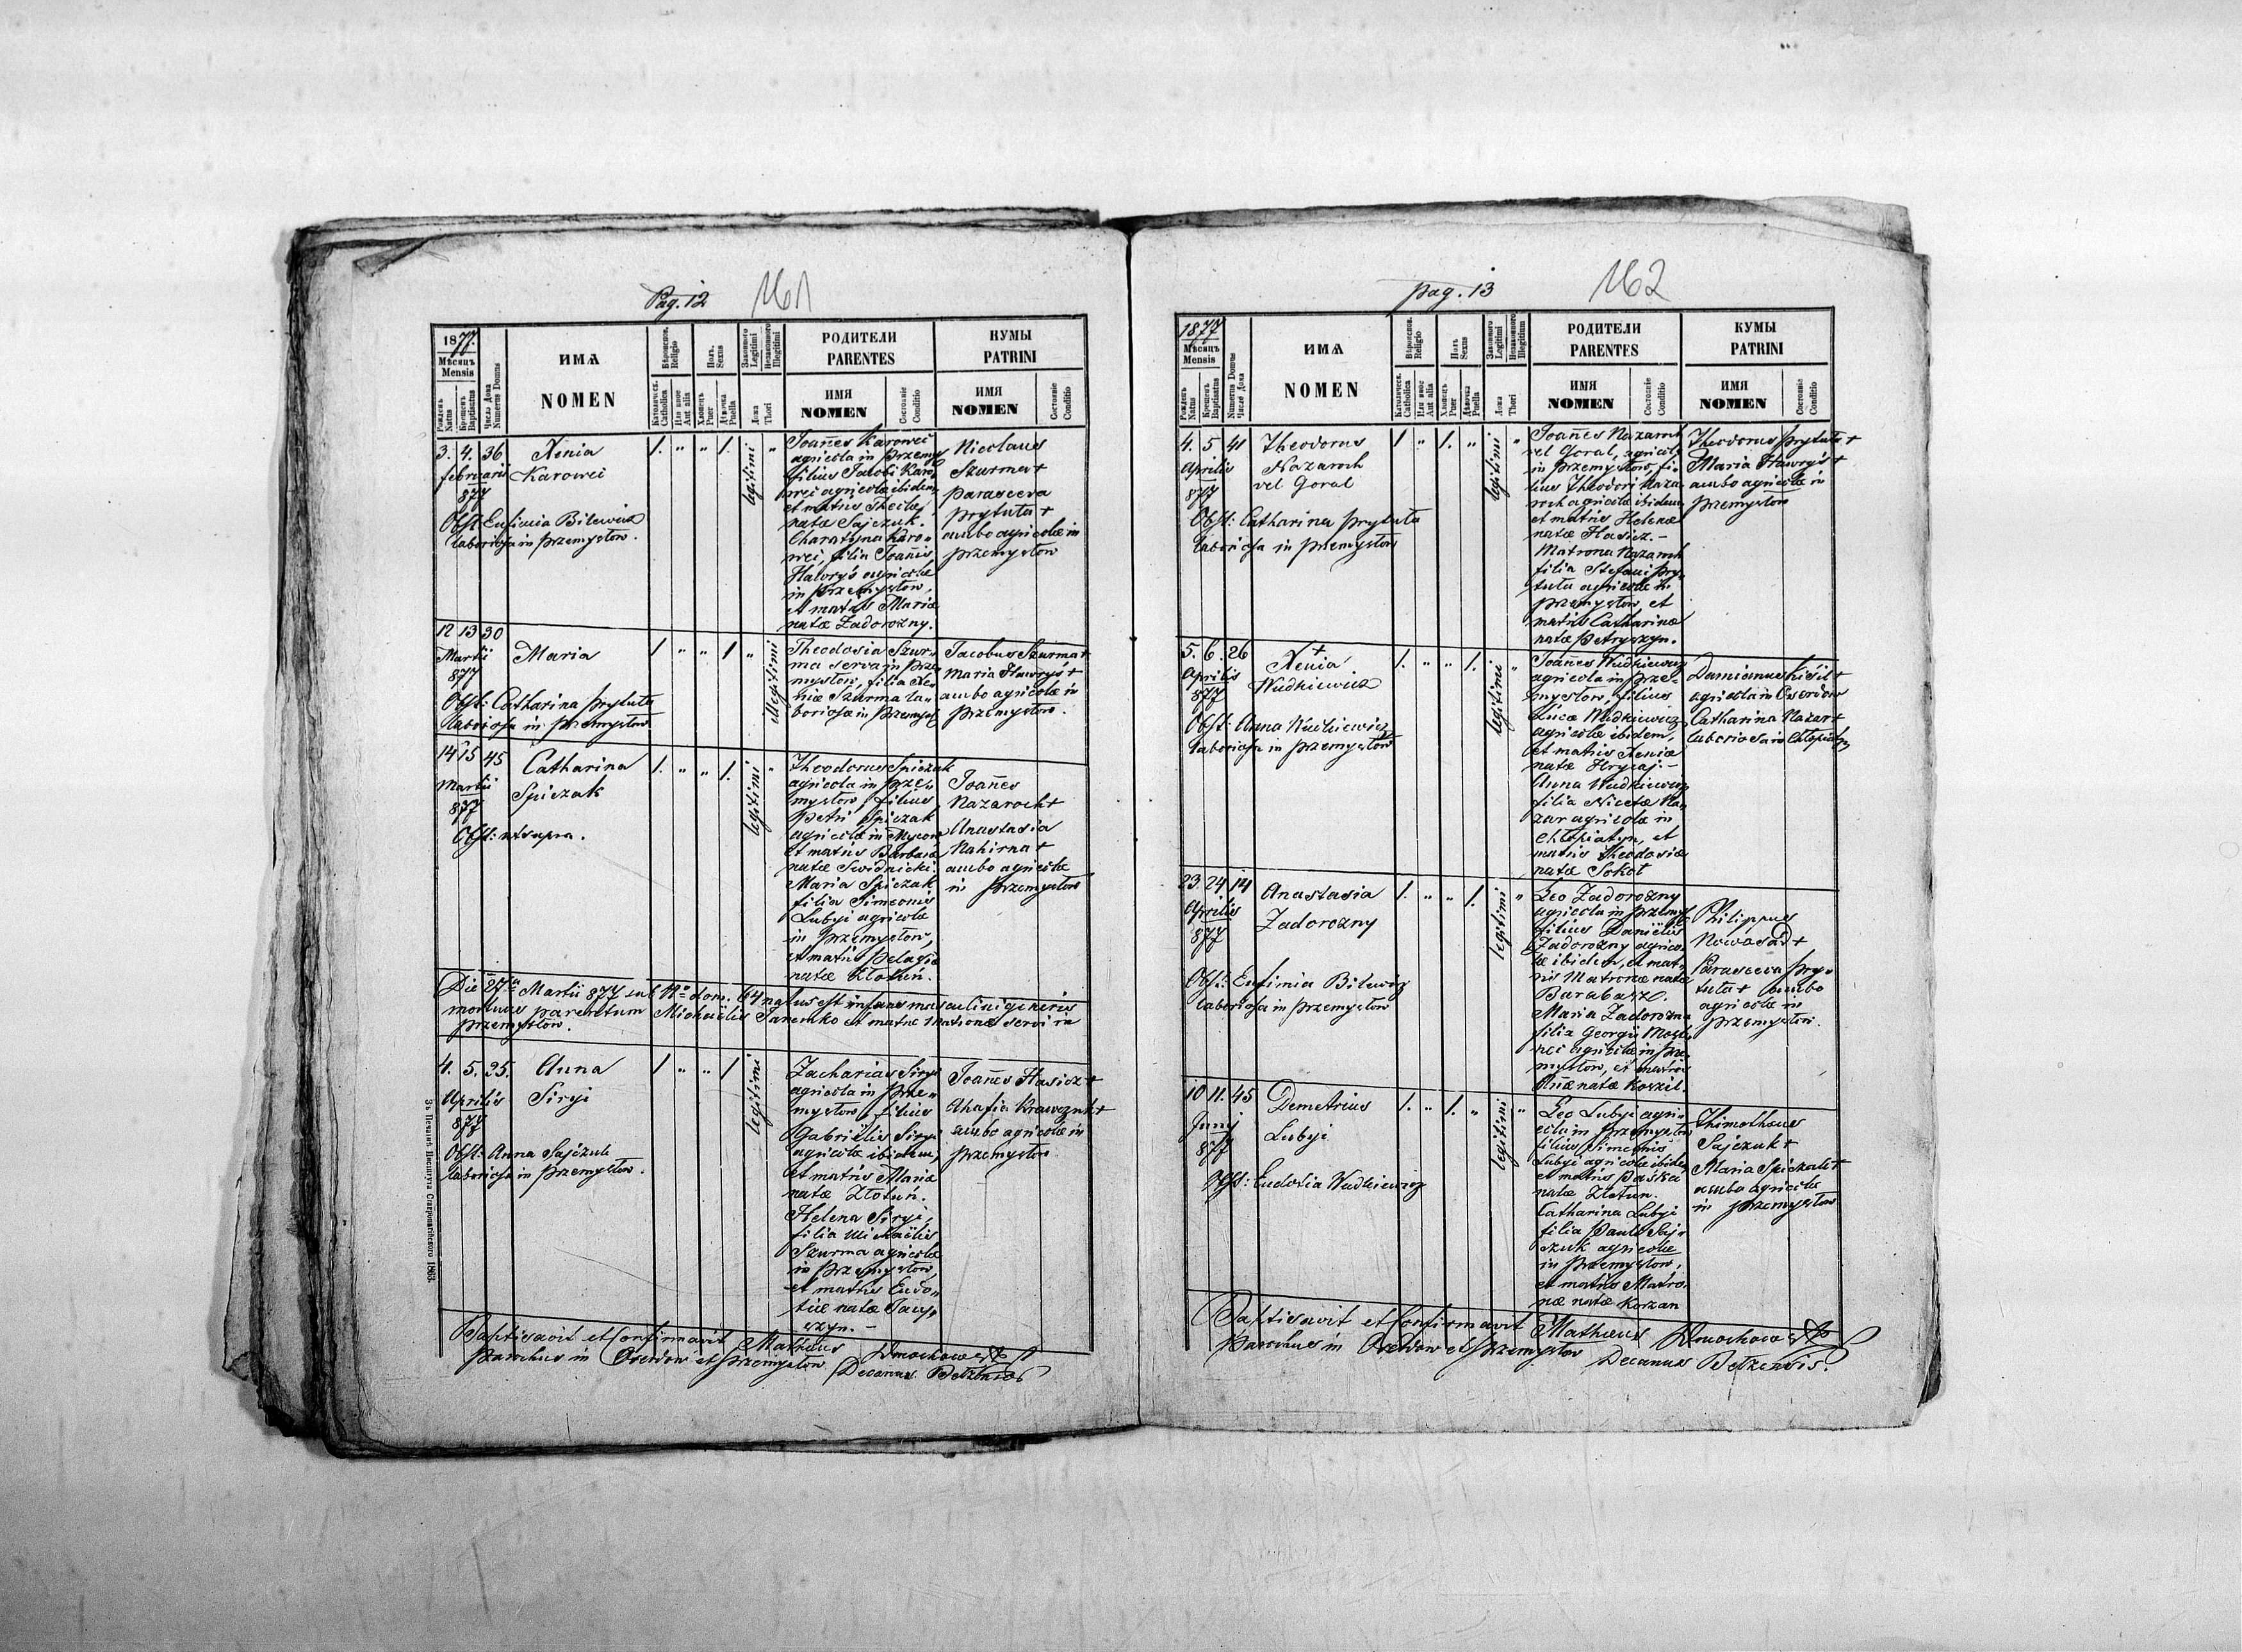 Pag. 12
161
1877.
Мѣсяцъ
Mensis
Рожденъ
Natus
Крещенъ
Baptisatus
Число Дома
Numerus Domus
ИМѦ
NOMEN
Вѣроиспов.
Religio
Католическ.
Catholica
Или иное
Aut alia
Полъ
Sexus
Хлопецъ
Puer
Дѣвочка
Puella
Законного
Legitimi
Незаконного
Illegitimi
Ложа
Thori
РОДИТЕЛИ
PARENTES
ИМЯ
NOMEN
Состояніе
Conditio
КУМЫ
PATRINI
ИМЯ
NOMEN
Состояніе
Conditio
3. 4. 36
februarii
877
Xenia
Karowei
1. " " 1.
legitimi "
Obst: Eufimia Bilewicz
laboriosa in Przemysłow.
Joañes Karowei
agricola in Przemys
filius Jacobi Karo-
wei agricola ibidem
et matris Theclae
natae Sajczuk.
Charatyna Karo-
wei, filia Joañis
Hawryś agricolae
in Przemysłow,
et matris Mariae
natae Zadorozny.
Nicolaus
Szurma +
Parasceva
Prytuła +
ambo agricolae in
Przemysłow
12 13 30
Martii
877
Maria
1 " " 1 "
illegitimi
Obst: Catharina Prytuła
laboriosa in Przemysłow
Theodosia Szur-
ma serva in Prze
mysłow, filia Xe-
niae Szurma la-
boriosae in Przemysł
Jacobus Szurma +
Maria Hawryś +
ambo agricolae in
Przemysłow.
14 15 45
Martii
877
Catharina
Spiczak
1. " " 1.
legitimi "
Obst: ut supra.
Theodorus Spiczak
agricola in Prze-
mysłow, filius
Petri Spiczak
agricolae in
et matris Barbarae
natae Swidnicki.
Maria Spiczak
filia Simeonis
Lubyi agricolae
in Przemysłow,
et matris Pelagiae
natae Złotuń.
Joañes
Nazaroch +
Anastasia
Nahirna +
ambo agricolae
in Przemysłow
Die 27 Martii 877 sub No dom. 64 natus est infans masculini generis
mortuus parentum Michaëlis Janenko et matris Matronae servi in
Przemysłow.
4. 5. 35.
Aprilis
877
Anna
Siryi
1 " " 1
legitimi
Obst: Anna Sajczuk
laboriosa in Przemysłow.
Zacharias Siryi
agricola in Prze-
mysłow, filius
Gabriëlis Siryi
agricolae ibidem,
et matris Mariae
natae Złotuń.
Helena Siryi,
filia Michaëlis
Szurma agricolae
in Przemysłow,
et matris Eudo-
tiae natae
szyn. -
Joañes Hasicz +
Ahafia Krawczuk +
ambo agricolae in
Przemysłow
Baptisavit et Confirmavit Mathaeus
Parochus in Oserdow et Przemysłow Decanus Bełzensis
Зъ Печатнѣ Института Ставропигійского 1863.
pag. 13
162
1877
Мѣсяцъ
Mensis
Рожденъ
Natus
Крещенъ
Baptisatus
Numerus Domus
Число Дома
ИМѦ
NOMEN
Вѣроиспов.
Religio
Католическ.
Catholica
Или иное
Aut alia
Полъ
Sexus
Хлопецъ
Puer
Дѣвочка
Puella
Законного
Legitimi
Незаконного
Illegitimi
Ложа
Thori
РОДИТЕЛИ
PARENTES
ИМЯ
NOMEN
Состояніе
Conditio
КУМЫ
PATRINI
ИМЯ
NOMEN
Состояніе
Conditio
4. 5. 41
Aprilis
877
Theodorus
Nazaroch
vel Goral
1 " 1. "
legitimi "
Obst: Catharina Prytuła
laboriosa in Przemysłow
Joañes Nazaroch
vel Goral, agricola
in Przemysłow, fi-
lius Theodori Naza-
roch agricolae ibidem
et matris Helenae
natae Hasicz. -
Matrona Nazaroch
filia Stefani Pry-
tuła agricolae in
Przemysłow, et
matris Catharinae
natae Petryszyn.
Theodorus Prytuła +
Maria Hawryś +
ambo agricolae in
Przemysłow
5. 6. 26
Aprilis
877
+
Xenia
Wudkiewicz
1. " " 1.
legitimi "
Obst: Anna Wudkiewicz
laboriosa in Przemysłow
Joañes Wudkiewicz
agricola in Prze-
mysłow, filius
Lucae Wudkiewicz
agricolae ibidem,
et matris Xeniae
natae Hrycaj -
Anna Wudkiewicz
filia Nicetae Na-
zar agricolae in
Chłopiatyn, et
matris Theodosiae
natae Sokół
Damianus Kisil +
agricola in Oserdow
Catharina Nazar +
laboriosa in Chłopiatyn
23. 24 14
Aprilis
877
Anastasia
Zadorozny
1. " " 1.
legitimi "
Obst: Eufimia Bilewicz
laboriosa in Przemysłow
Leo Zadorozny
agricola in Przemysł
filius Daniëlis
Zadorozny agrico-
lae ibidem, et mat-
ris Matronae natae
Barabasz.
Maria Zadorozna
filia Georgii
agricolae in Prze-
mysłow, et matris
Añae natae Korzil.
Philippus
Nowosad +
Parasceva Pry-
tuła + ambo
agricolae in
Przemysłow.
10 11. 45
Junij
877
Demetrius
Lubyi
1. " 1. "
legitimi "
Obst: Eudosia Wudkiewicz
Leo Lubyi agri-
cola in Przemysłow
filius Simeonis
Lubyi agricolae ibidem
et matris
natae Złotun.
Catharina Lubyi
filia Pauli Saj-
czuk agricolae
in Przemysłow,
et matris Matro-
nae natae Korzan
Thimothaeus
Sajczuk +
Maria Spiczak +
ambo agricolae
in Przemysłow
Baptisavit et Confirmavit Mathaeus
Parochus in Oserdow et Przemysłow Decanus Bełzensis.